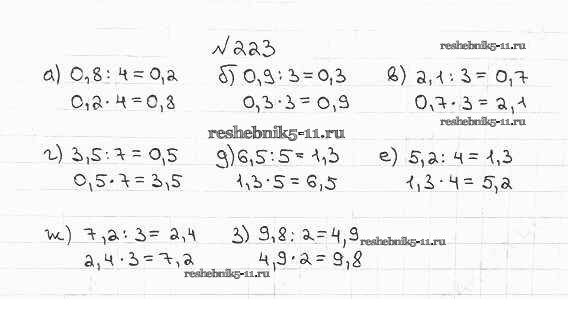 №223
reshebnik5-11.ru
а) 0,8 : 4 = 0,2 б) 0,9 : 3 = 0,3 в) 2,1 : 3 = 0,7
0,2 · 4 = 0,8 0,3 · 3 = 0,9 0,7 · 3 = 2,1
reshebnik5-11.ru
reshebnik5-11.ru
г) 3,5 : 7 = 0,5 д) 6,5 : 5 = 1,3 е) 5,2 : 4 = 1,3
0,5 · 7 = 3,5 1,3 · 5 = 6,5 1,3 · 4 = 5,2
ж) 7,2 : 3 = 2,4 з) 9,8 : 2 = 4,9
reshebnik5-11.ru
2,4 · 3 = 7,2 4,9 · 2 = 9,8
reshebnik5-11.ru